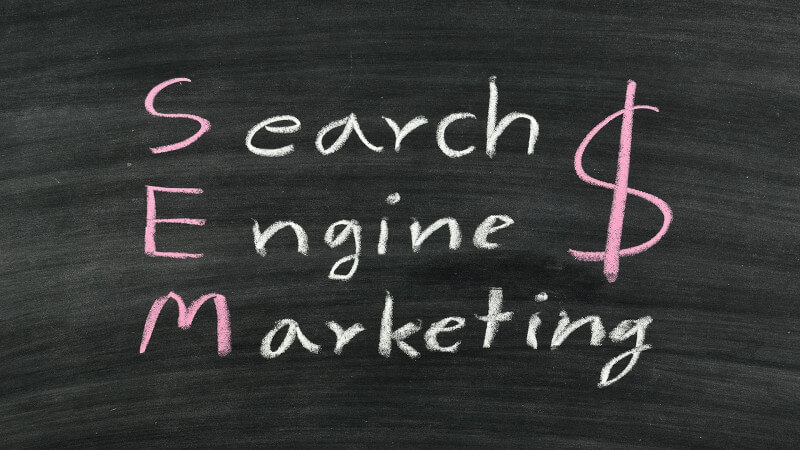 Search $
Engine
Marketing